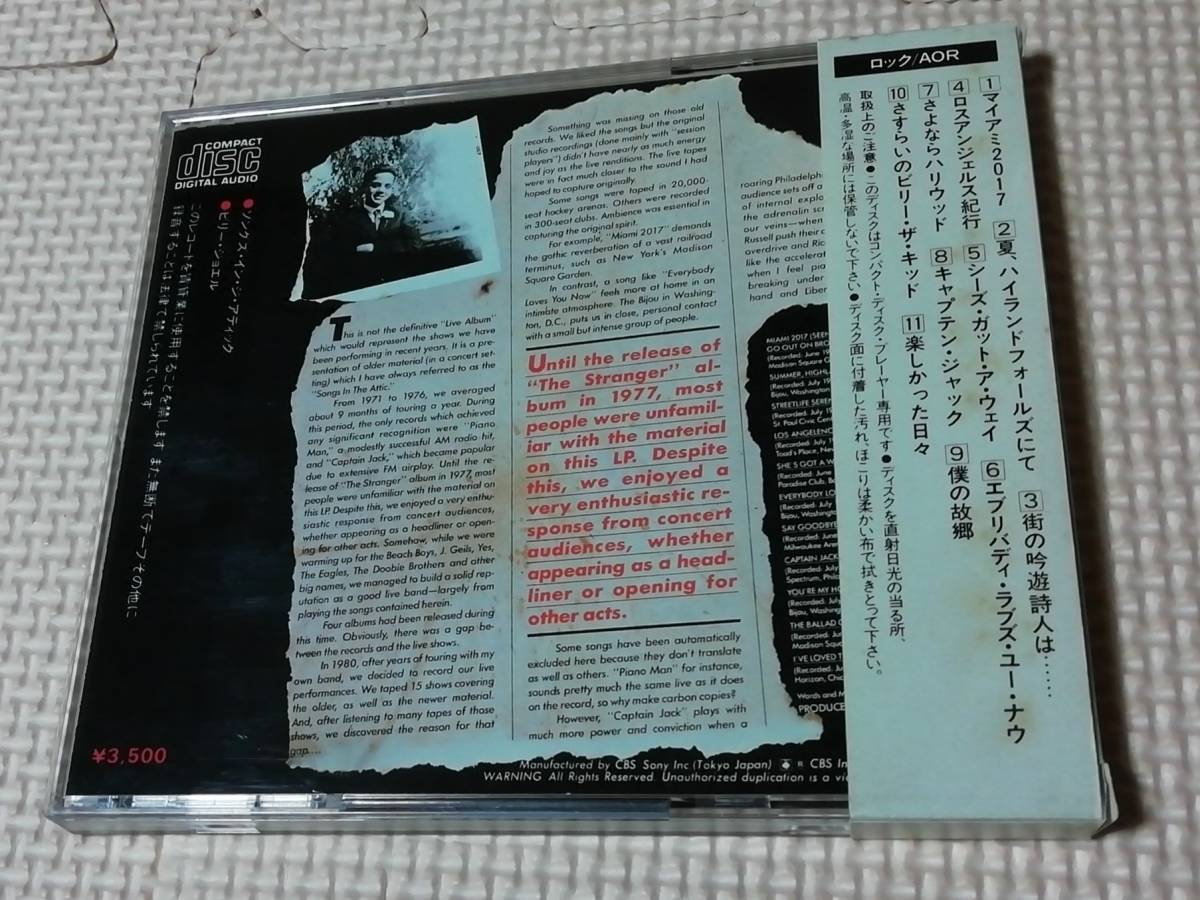 COMPACT
disc
DIGITAL AUDIO
●ソングス・イン・ジ・アティック
●ビリー・ジョエル
このレコードを賃貸業に使用することを禁じます また無断でテープその他に
録音することは法律で禁じられています
¥3,500
This is not the definitive "Live Album"
which would represent the shows we have
been performing in recent years. It is a pre-
sentation of older material (in a concert set-
ting) which I have always referred to as the
"Songs In The Attic."
From 1971 to 1976, we averaged
about 9 months of touring a year. During
this period, the only records which achieved
any significant recognition were "Piano
Man," a modestly successful AM radio hit,
and "Captain Jack," which became popular
due to extensive FM airplay. Until the re-
lease of "The Stranger" album in 1977, most
people were unfamiliar with the material on
this LP. Despite this, we enjoyed a very enthu-
siastic response from concert audiences,
whether appearing as a headliner or open-
ing for other acts. Somehow, while we were
warming up for the Beach Boys, J. Geils, Yes,
The Eagles, The Doobie Brothers and other
big names, we managed to build a solid rep-
utation as a good live band—largely from
playing the songs contained herein.
Four albums had been released during
this time. Obviously, there was a gap be-
tween the records and the live shows.
In 1980, after years of touring with my
own band, we decided to record our live
performances. We taped 15 shows covering
the older, as well as the newer material.
And, after listening to many tapes of those
shows, we discovered the reason for that
gap....
Something was missing on those old
records. We liked the songs but the original
studio recordings (done mainly with "session
players") didn't have nearly as much energy
and joy as the live renditions. The live tapes
were in fact much closer to the sound I had
hoped to capture originally.
Some songs were taped in 20,000-
seat hockey arenas. Others were recorded
in 300-seat clubs. Ambience was essential in
capturing the original spirit.
For example, "Miami 2017" demands
the gothic reverberation of a vast railroad
terminus, such as New York's Madison
Square Garden.
In contrast, a song like "Everybody
Loves You Now" feels more at home in an
intimate atmosphere. The Bijou in Washing-
ton, D.C., puts us in close, personal contact
with a small but intense group of people.
Until the release of
"The Stranger" al-
bum in 1977, most
people were unfamil-
iar with the material
on this LP. Despite
this, we enjoyed a
very enthusiastic re-
sponse from concert
audiences, whether
appearing as a head-
liner or opening for
other acts.
Some songs have been automatically
excluded here because they don't translate
as well as others. "Piano Man" for instance,
sounds pretty much the same live as it does
on the record, so why make carbon copies?
However, "Captain Jack" plays with
much more power and conviction when a
roaring Philadelph
audience sets off a
of internal explo
the adrenalin sc
our veins—when
Russell push their
overdrive and Ric
like the accelerat
when I feel pia
breaking under
hand and Liber
MIAMI 2017 (SEEN
GO OUT ON BRO
(Recorded: June 19
Madison Square G
SUMMER, HIGHLA
(Recorded: July 19
Bijou, Washington
STREETLIFE SEREN
(Recorded: July 19
St. Paul Civic Cen
LOS ANGELENO
(Recorded: July
Toad's Place, Ne
SHE'S GOT A W
(Recorded: June
Paradise Club, B
EVERYBODY LO
(Recorded: July
Bijou, Washingto
SAY GOODBYE
(Recorded: June
Milwaukee Aren
CAPTAIN JACK
(Recorded: July
Spectrum, Phila
YOU'RE MY HO
(Recorded: July
Bijou, Washing
THE BALLAD O
(Recorded: Jun
Madison Squar
I'VE LOVED T
(Recorded: Jul
Horizon, Chic
Words and M
PRODUCE
Manufactured by CBS Sony Inc (Tokyo Japan) ® CBS In
WARNING All Rights Reserved. Unauthorized duplication is a vio
ロック/AOR
1マイアミ2017 2夏、ハイランドフォールズにて 3街の吟遊詩人は……
4ロスアンジェルス紀行 5シーズ・ガット・ア・ウェイ 6エブリバディ・ラブズ・ユー・ナウ
7さよならハリウッド 8キャプテン・ジャック 9僕の故郷
10さすらいのビリー・ザ・キッド 11楽しかった日々
取扱上のご注意●このディスクはコンパクト・ディスク・プレーヤー専用です。●ディスクを直射日光の当る所、
高温・多湿な場所には保管しないで下さい。●ディスク面に付着した汚れ、ほこりは柔かい布で拭きとって下さい。